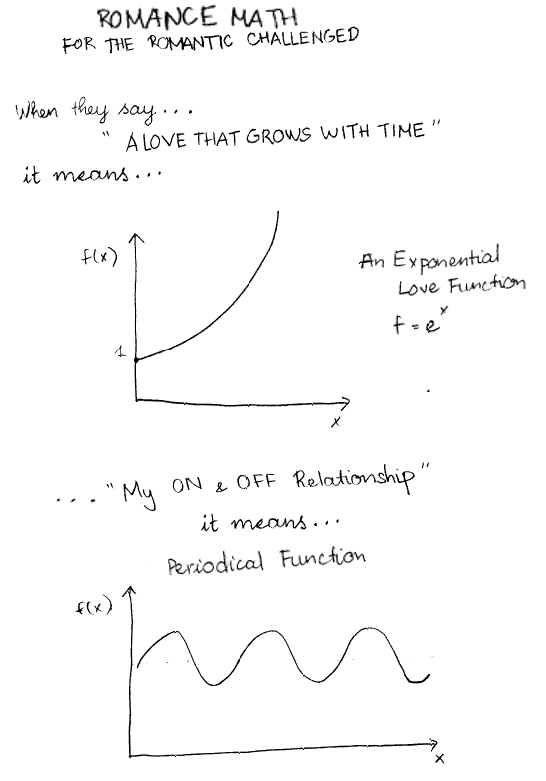 ROMANCE MATH
FOR THE ROMANTIC CHALLENGED
When they say...
" A LOVE THAT GROWS WITH TIME"
it means...
f(x)
An Exponential
Love Function
f = e^x
1
x
... "My ON & OFF Relationship"
it means...
Periodical Function
f(x)
x